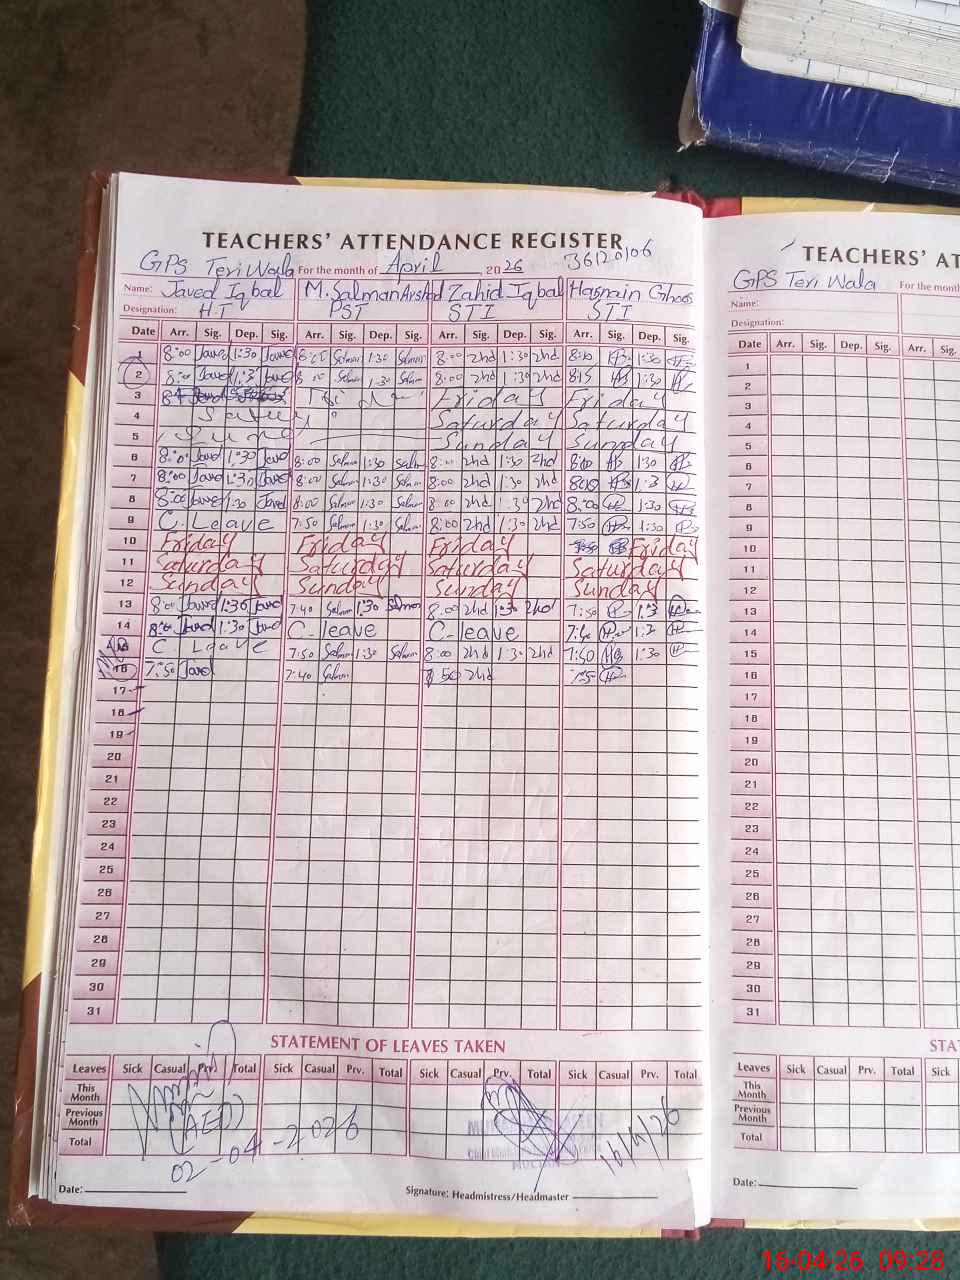 TEACHERS' ATTENDANCE REGISTER
GPS Teri Wala For the month of April 2026 36120106
Name: Javed Iqbal M. Salman Arshad Zahid Iqbal Hasnain Ghous
Designation: H.T PST STI STI
Date Arr. Sig. Dep. Sig. Arr. Sig. Dep. Sig. Arr. Sig. Dep. Sig. Arr. Sig. Dep. Sig.
1 8:00 Javed 1:30 Javed Salman 1:30 Salman 8:00 2nd 1:30 2nd 1:30
2 8:00 Javed 1:3 Javed Salman 1:30 Salman 8:00 2nd 1:30 2nd 8:15 1:30
3 Friday Friday
4 Saturday Saturday
5 Sunday Sunday
6 8:00 Javed 1:30 Javed 8:00 Salman 1:30 Salman 8:00 2nd 1:30 2nd 8:00 1:30
7 8:00 Javed 1:30 Javed 8:00 Salman 1:30 Salman 8:00 2nd 1:30 2nd 1:3
8 8:00 Javed 1:30 Javed 8:00 Salman 1:30 Salman 8:00 2nd 1:30 2nd 8:00 1:30
9 C. Leave 7:50 Salman 1:30 Salman 8:00 2nd 1:30 2nd 7:50 1:30
10 Friday Friday Friday Friday
11 Saturday Saturday Saturday Saturday
12 Sunday Sunday Sunday Sunday
13 8:00 Javed 1:30 Javed 7:40 Salman 1:30 Salman 8:00 2nd 1:30 2nd 7:50 1:3
14 8:00 Javed 1:30 Javed C-leave C-leave 1:3
C. Leave 7:50 Salman 1:30 Salman 8:00 2nd 1:30 2nd 7:50 1:30
16 7:50 Javed 7:40 Salman 50 2nd
17
18
19
20
21
22
23
24
25
26
27
28
29
30
31
STATEMENT OF LEAVES TAKEN
Leaves Sick Casual Prv. Total Sick Casual Prv. Total Sick Casual Prv. Total Sick Casual Prv. Total
This Month
Previous Month
Total
(AEO)
02-04-2026
16/4/26
MULTAN
Date:
Signature: Headmistress/Headmaster
TEACHERS' AT
GPS Teri Wala For the month
Name:
Designation:
Date Arr. Sig. Dep. Sig. Arr. Sig.
1
2
3
4
5
6
7
8
9
10
11
12
13
14
15
16
17
18
19
20
21
22
23
24
25
26
27
28
29
30
31
STAT
Leaves Sick Casual Prv. Total Sick
This Month
Previous Month
Total
Date:
16-04-26 09:28